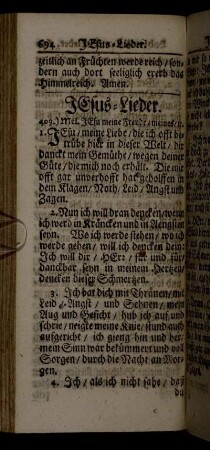 694. JEsus-Lieder.
zeitlich an Früchten werde reich / son-
dern auch dort seeliglich ererb das
Himmelreich. Amen.
JEsus-Lieder.
409. Mel. JEsu meine Freude /
1. JEsu / meine Liebe / die ich offt be-
trübe hier in dieser Welt / dir
danckt mein Gemüthe / wegen deiner
Güte / die mich noch erhält. Die mir
offt gar unverhofft hat geholffen in
dem Klagen / Noth / Leid / Angst und
Zagen.
2. Nun ich will dran dencken / wenn
ich werd in Kräncken und in Aengsten
seyn. Wo ich werde stehen / wo ich
werde gehen / will ich dencken dein:
Ich will dir / HErr / für und für
danckbar seyn in meinem Hertzen /
dencken dieser Schmertzen.
3. Ich bat dich mit Thränen / mit
Leid / Angst / und Sehnen / mein
Aug und Gesicht / hub ich auf und
schrie / neigte meine Knie / stund auch
aufgericht / ich gieng hin und her /
mein Sinn war bekümmert und voll
Sorgen / durch die Nacht an Mor-
gen.
4. Ich / als ich nicht sahe / daß
du